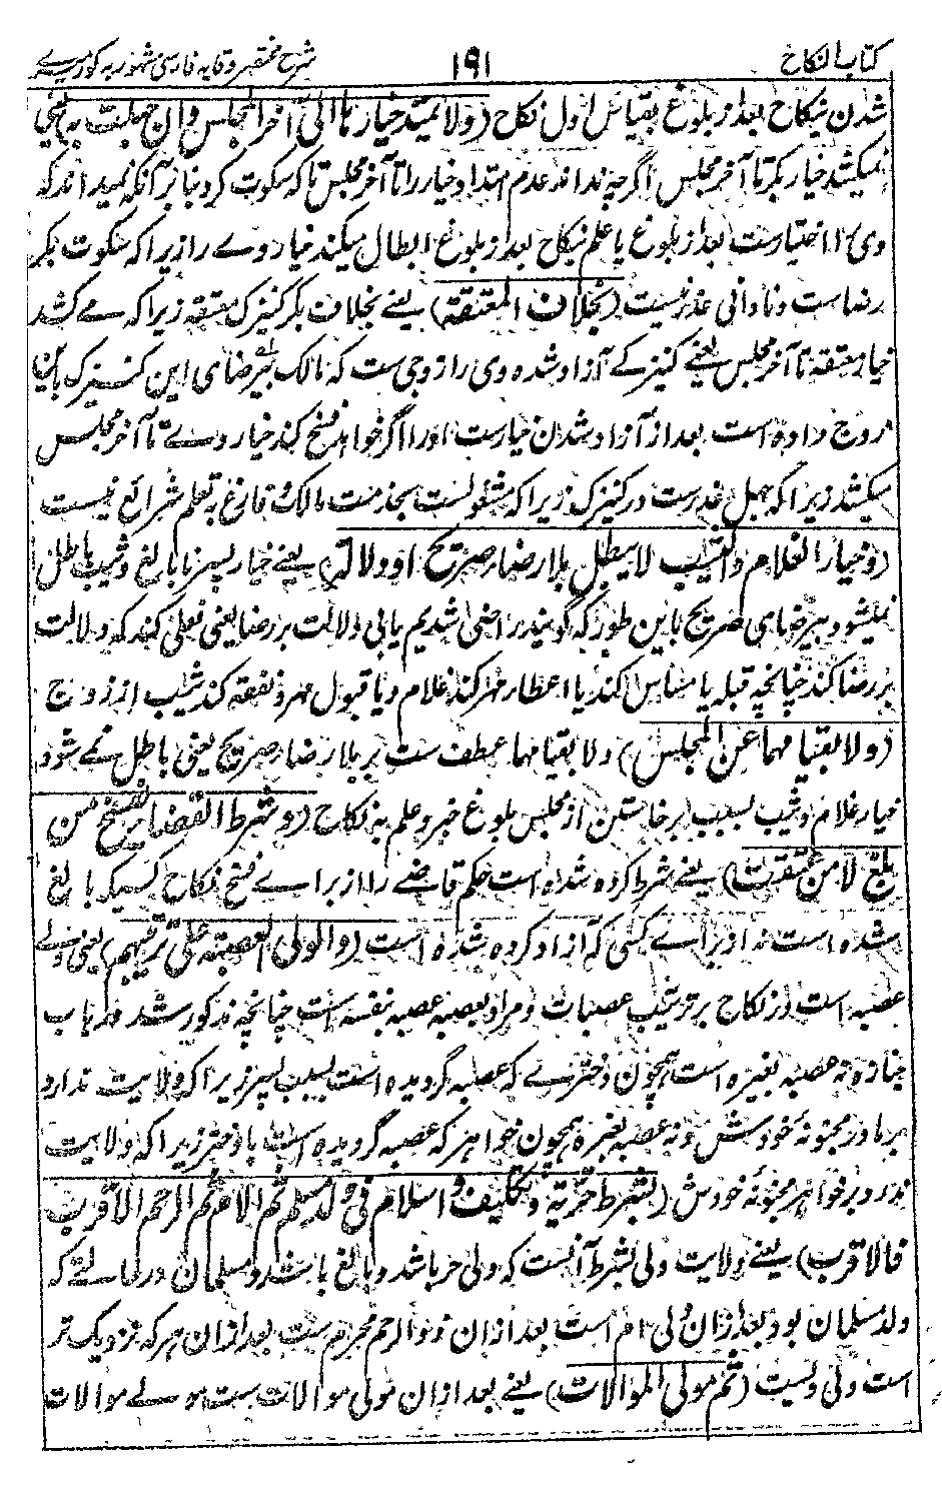 کتاب النکاح ۱۹۱ شرح مختصر وقایه فارسی مشهور به کورمیری
شدن نکاح بعد از بلوغ بقیاس اول نکاح (ولا یمتد خیارها الی آخر المجلس وان جهلت به) یعنی
نمیکشد خیار بکر تا آخر مجلس اگرچه نداند عدم امتداد خیار را تا آخر مجلس تا که سکوت کرد بنا بر آنکه نمیداند که
وی را اختیارست بعد از بلوغ یا علم نکاح بعد از بلوغ ابطال میکند خیار وے را زیرا که سکوت بکر
رضاست و نادانی عذر نیست (بخلاف المعتقة) یعنے بخلاف بکر کنیزک معتقه زیرا که مے کشد
خیار معتقه تا آخر مجلس یعنے کنیزکے آزاد شده وی را زوجی ست که مالک بیرضای این کنیزک باین
زوج داده است بعد از آزاد شدن خیارست او را اگر خواهد فسخ کند خیار وے تا آخر مجلس
میکشد زیرا که جهل عذرست در کنیزک زیرا که مشغولست بخدمت مالک و فارغ به تعلم شرائع نیست
(وخیار الغلام والثیب لا یبطل بلا رضاء صریح او دلالة) یعنے خیار پسر نابالغ وثیب باطل
نمیشود بیرضای صریح باین طور که گویند راضی شدیم یا بی دلالت بر رضا یعنی فعلی کند که دلالت
بر رضا کند چنانچه قبله یا مساس کند یا اعطار مهر کند غلام و یا قبول مهر و نفقه کند ثیب از زوج
(ولا بقیامهما عن المجلس) ولا بقیامهما عطف ست بر بلا رضاء صریح یعنی باطل نمے شود
خیار غلام وثیب بسبب برخاستن از مجلس بلوغ خبر و علم به نکاح (وشرط القضاء لفسخ من
بلغ لا من عتقت) یعنے شرط کرده شده است حکم قاضے را از براے فسخ نکاح کسیکه بالغ
شده است نه از براے کسی که آزاد کرده شده است (والولی العصبة علی ترتیبهم) یعنی ولے
عصبه است در نکاح بر ترتیب عصبات و مراد بعصبه عصبه بنفسه است چنانچه مذکور شد در باب
جنازه نه عصبه بغیره است همچون دخترے که عصبه گردیده است بسبب پسر زیرا که ولایت ندارد
بر مادر مجنونه خودش و نه عصبه بغیره همچون خواهر که عصبه گردیده است با دختر زیرا که ولایت
ندارد بر خواهر مجنونه خودش (بشرط حریة وتکلیف واسلام فی ولد مسلم ثم الام ثم ذو الرحم الاقرب
فالاقرب) یعنے ولایت ولی بشرط آنست که ولی حر باشد و بالغ باشد و مسلمان در حالتے که
ولد مسلمان بود بعد از آن ولی ام است بعد از آن ذو الرحم محرم ست بعد از آن هر که نزدیک تر
است ولی ویست (ثم مولی الموالات) یعنے بعد از آن مولی موالات ست مولے موالات